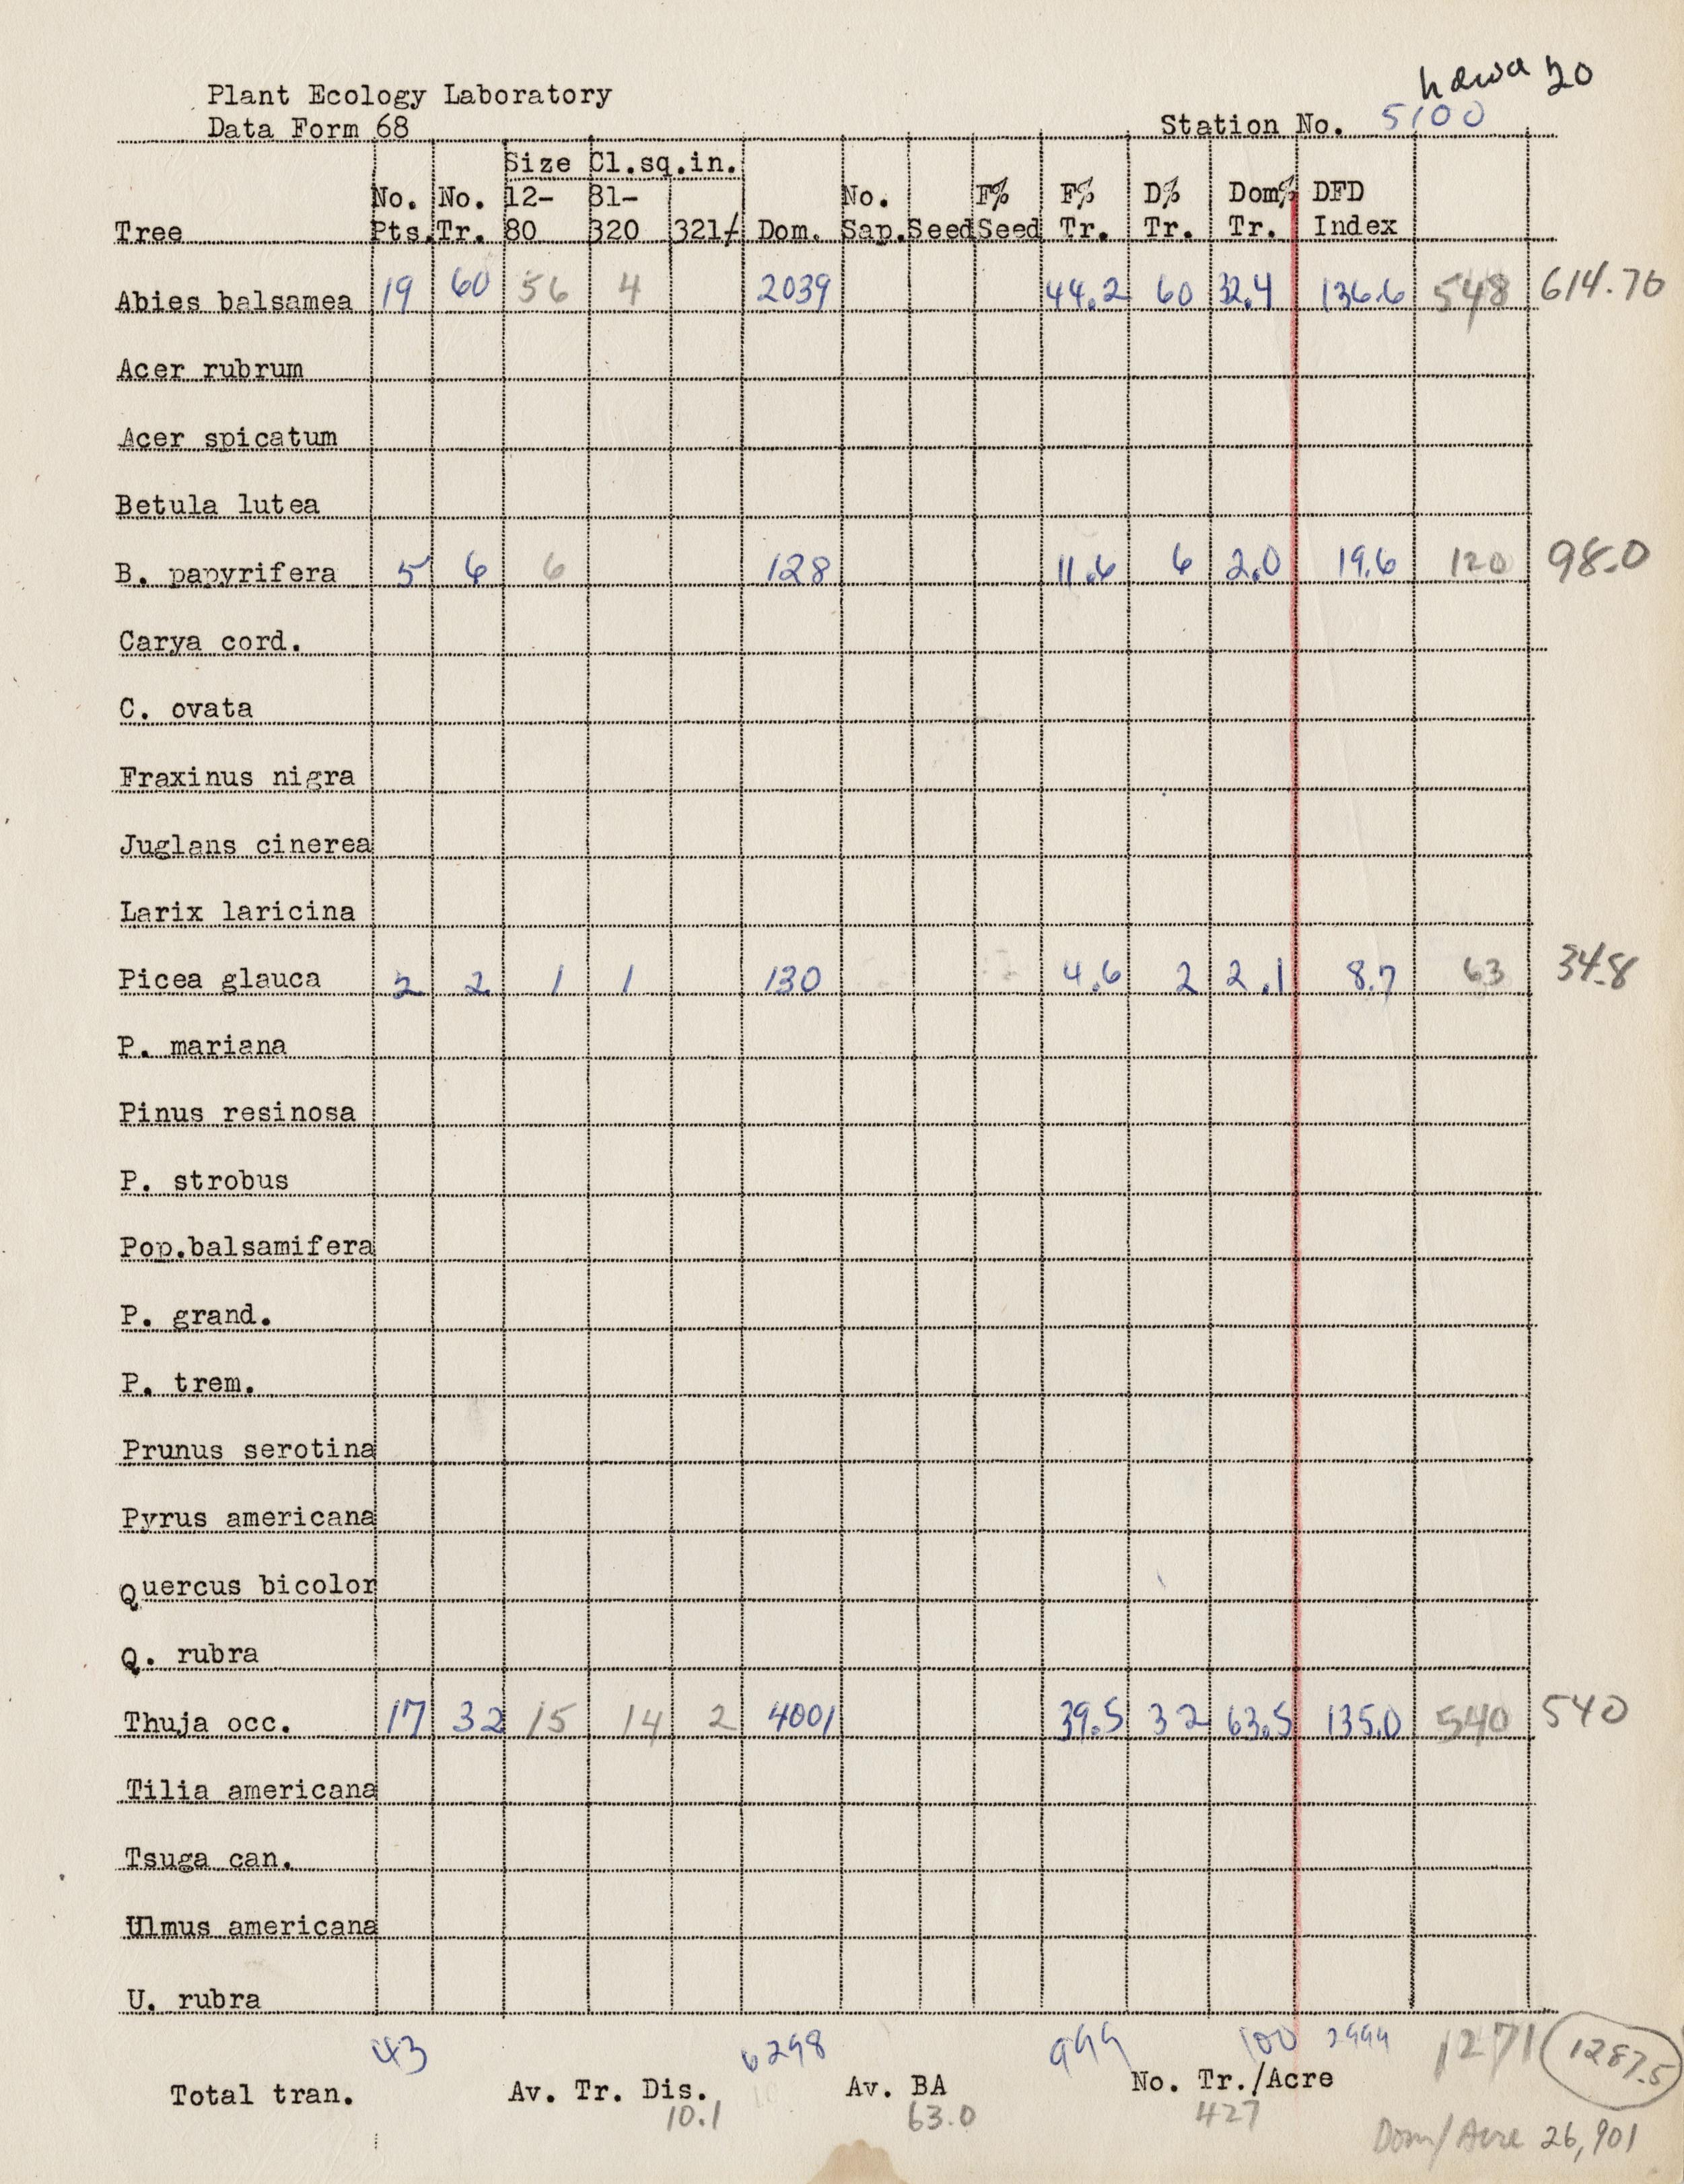 20
Plant Ecology Laboratory
Data Form 68 Station No. 5100
Size Cl.sq.in.
No. No. 12- 81- No. F% F% D% Dom% DFD
Tree Pts. Tr. 80 320 321/ Dom. Sap. Seed Seed Tr. Tr. Tr. Index
Abies balsamea 19 60 56 4 2039 44.2 60 32.4 136.6 548 614.70
Acer rubrum
Acer spicatum
Betula lutea
B. papyrifera 5 6 6 128 11.6 6 2.0 19.6 120 98.0
Carya cord.
C. ovata
Fraxinus nigra
Juglans cinerea
Larix laricina
Picea glauca 2 2 1 1 130 4.6 2 2.1 8.7 63 34.8
P. mariana
Pinus resinosa
P. strobus
Pop.balsamifera
P. grand.
P. trem.
Prunus serotina
Pyrus americana
Quercus bicolor
Q. rubra
Thuja occ. 17 32 15 14 2 4001 39.5 32 63.5 135.0 540 540
Tilia americana
Tsuga can.
Ulmus americana
U. rubra
43 6298 999 100 2999 1271 1287.5
Total tran. Av. Tr. Dis. Av. BA No. Tr./Acre
10.1 63.0 427
Dom/Acre 26,901